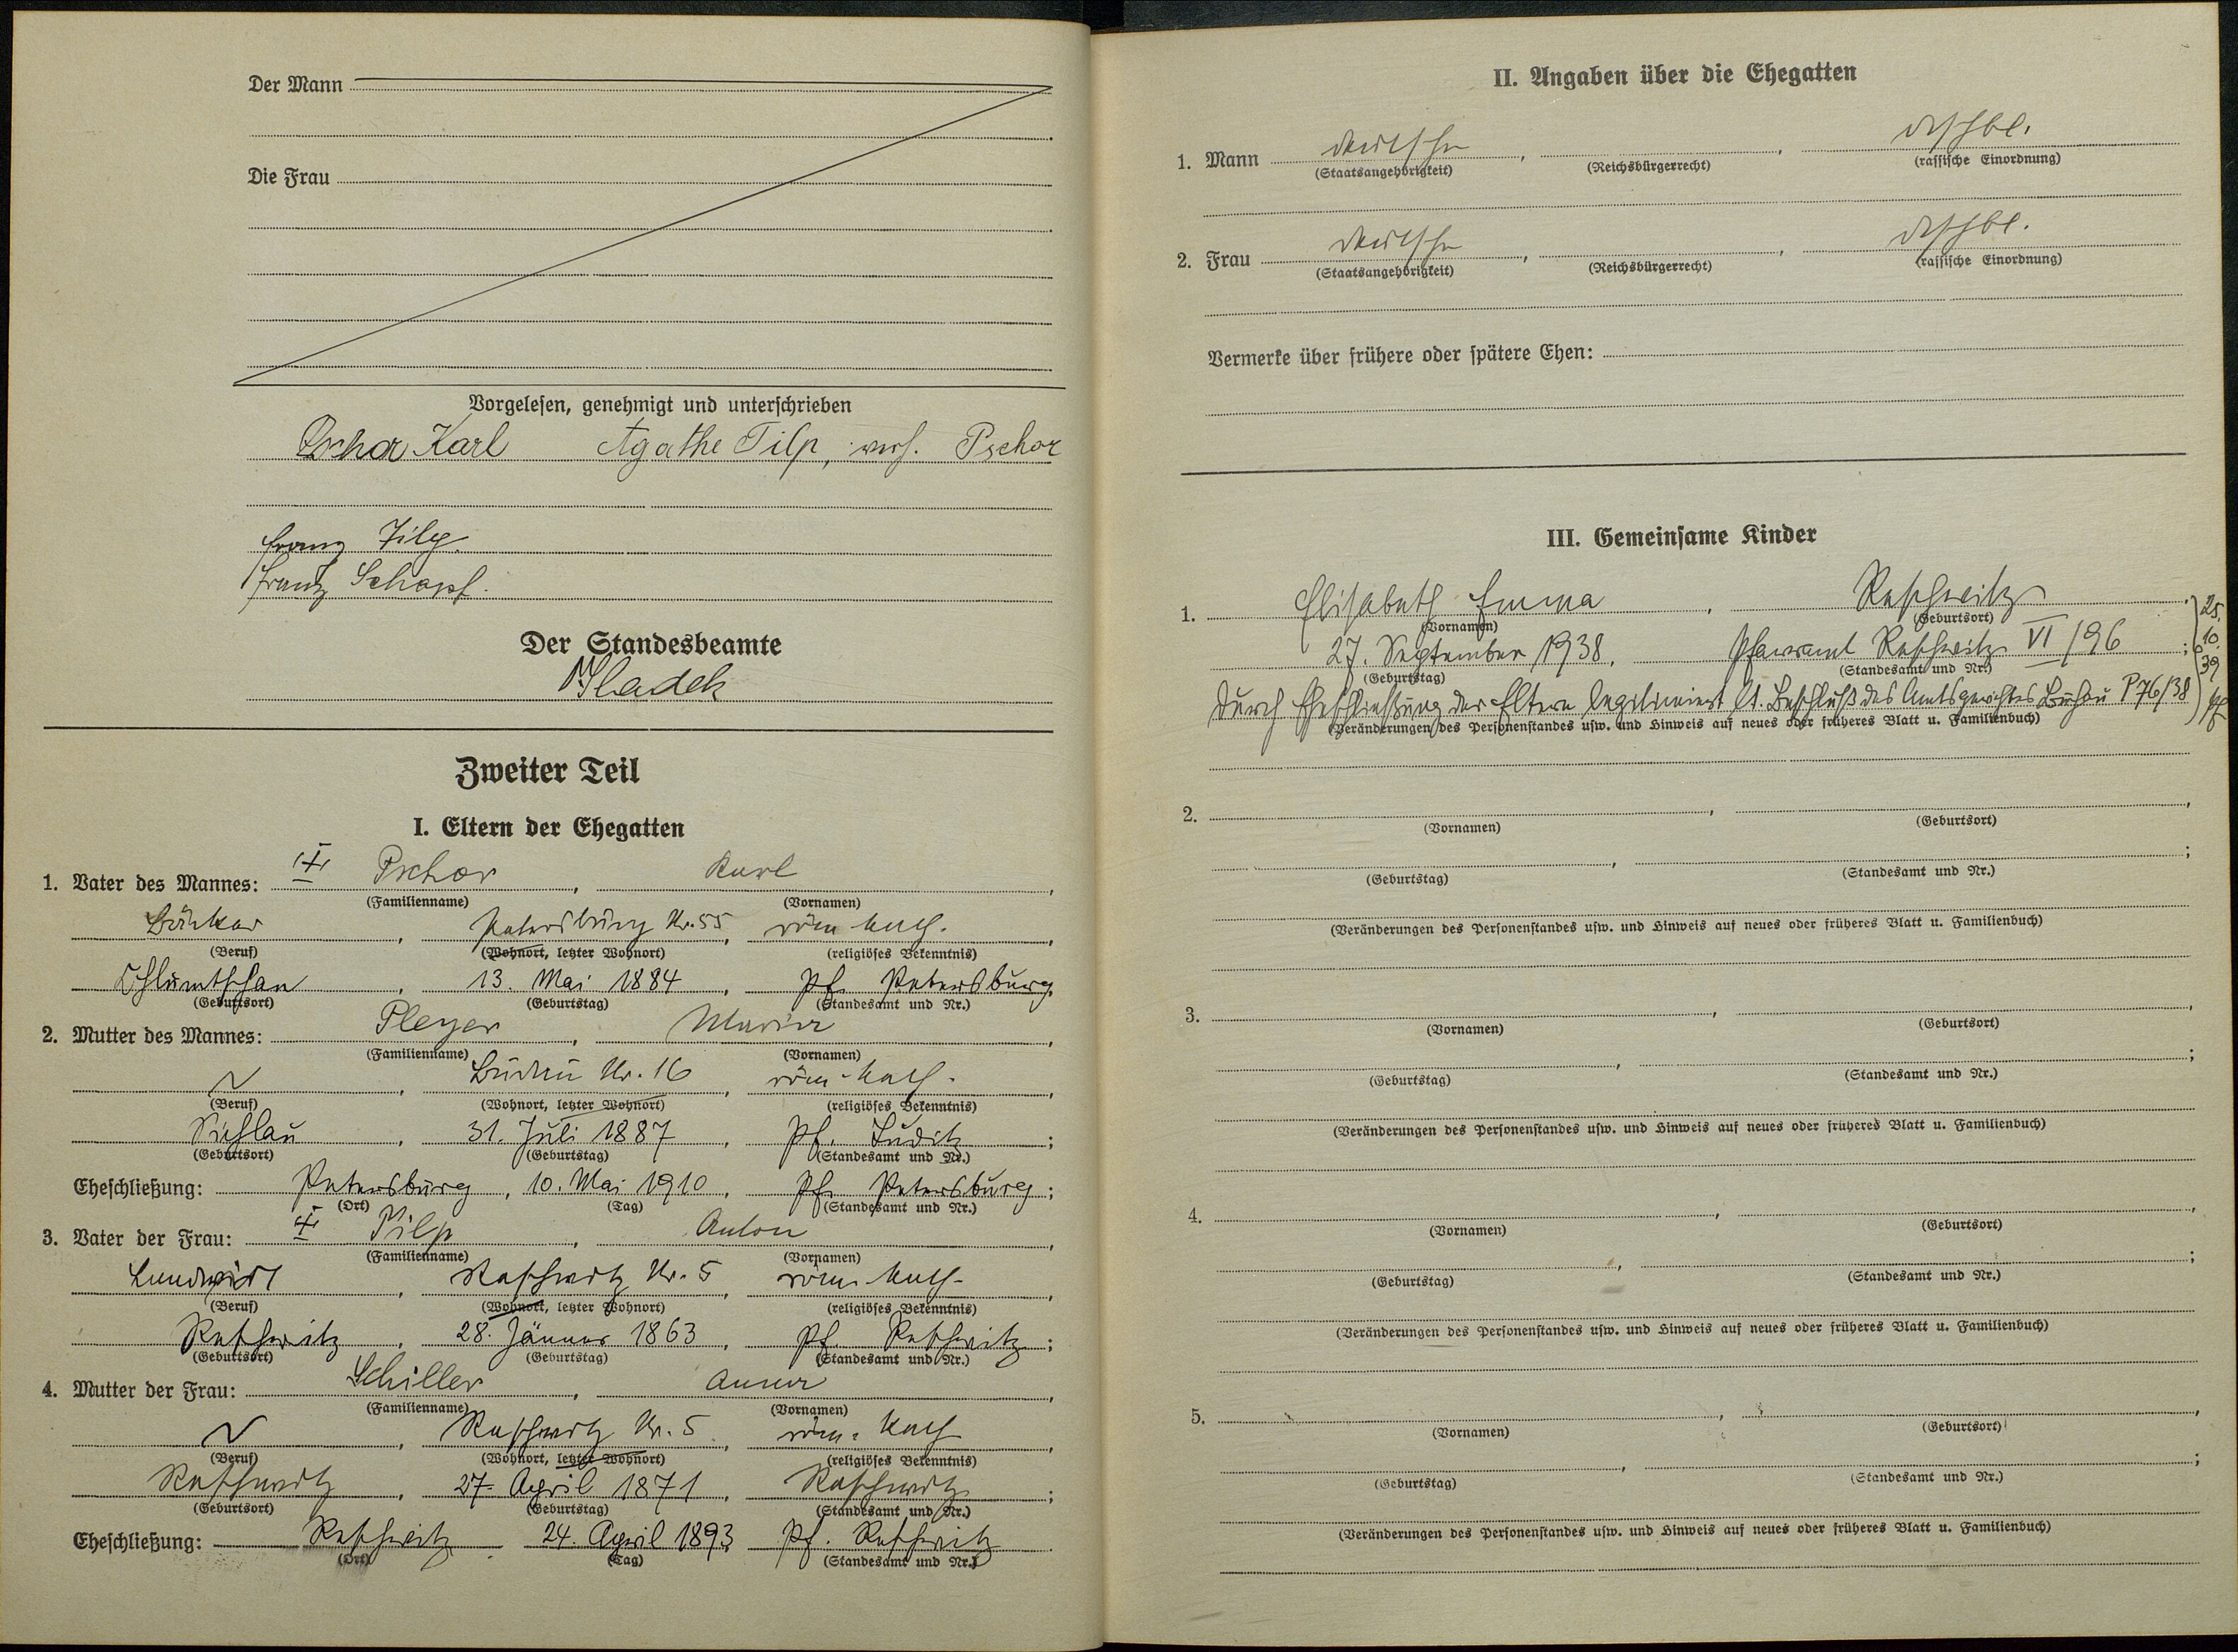 Der Mann
Die Frau
Vorgelesen, genehmigt und unterschrieben
Pschor Karl Agathe Tilp, verh. Pschor
Franz Tilp.
Franz Schopf.
Der Standesbeamte
Sladek
Zweiter Teil
I. Eltern der Ehegatten
1. Vater des Mannes: Pschor, Karl,
(Familienname) (Vornamen)
Bäcker, Petersburg Nr. 55, röm. kath.,
(Beruf) (Wohnort, letzter Wohnort) (religiöses Bekenntnis)
Chlumtschan, 13. Mai 1884, Pf. Petersburg,
(Geburtsort) (Geburtstag) (Standesamt und Nr.)
2. Mutter des Mannes: Pleyer, Maria,
(Familienname) (Vornamen)
Nr. 16, röm.-kath.,
(Beruf) (Wohnort, letzter Wohnort) (religiöses Bekenntnis)
31. Juli 1887, Pf. Luditz;
(Geburtsort) (Geburtstag) (Standesamt und Nr.)
Eheschließung: Petersburg, 10. Mai 1910, Pf. Petersburg;
(Ort) (Tag) (Standesamt und Nr.)
3. Vater der Frau: Tilp, Anton,
(Familienname) (Vornamen)
Landwirt, Ratschwitz Nr. 5, röm. kath.,
(Beruf) (Wohnort, letzter Wohnort) (religiöses Bekenntnis)
Ratschwitz, 28. Jänner 1863, Pf. Ratschwitz;
(Geburtsort) (Geburtstag) (Standesamt und Nr.)
4. Mutter der Frau: Schiller, Anna,
(Familienname) (Vornamen)
Ratschwitz Nr. 5, röm. kath,
(Beruf) (Wohnort, letzter Wohnort) (religiöses Bekenntnis)
Ratschwitz, 27. April 1871, Ratschwitz;
(Geburtsort) (Geburtstag) (Standesamt und Nr.)
Eheschließung: Ratschwitz, 24. April 1893, Pf. Ratschwitz.
(Ort) (Tag) (Standesamt und Nr.)
II. Angaben über die Ehegatten
1. Mann deutsche, , dtschbl.
(Staatsangehörigkeit) (Reichsbürgerrecht) (rassische Einordnung)
2. Frau deutsche, , dtschbl.
(Staatsangehörigkeit) (Reichsbürgerrecht) (rassische Einordnung)
Vermerke über frühere oder spätere Ehen:
III. Gemeinsame Kinder
1. Elisabeth Emma, Ratschwitz,
(Vornamen) (Geburtsort)
27. September 1938, Pfarramt Ratschwitz VI/96;
(Geburtstag) (Standesamt und Nr.)
Durch Eheschließung der Eltern legitimiert lt. Beschluß des Amtsgerichtes Buchau P 76/38
25.
10.
39
(Veränderungen des Personenstandes usw. und Hinweis auf neues oder früheres Blatt u. Familienbuch)
2. , ,
(Vornamen) (Geburtsort)
, ;
(Geburtstag) (Standesamt und Nr.)
(Veränderungen des Personenstandes usw. und Hinweis auf neues oder früheres Blatt u. Familienbuch)
3. , ,
(Vornamen) (Geburtsort)
, ;
(Geburtstag) (Standesamt und Nr.)
(Veränderungen des Personenstandes usw. und Hinweis auf neues oder früheres Blatt u. Familienbuch)
4. , ,
(Vornamen) (Geburtsort)
, ;
(Geburtstag) (Standesamt und Nr.)
(Veränderungen des Personenstandes usw. und Hinweis auf neues oder früheres Blatt u. Familienbuch)
5. , ,
(Vornamen) (Geburtsort)
, ;
(Geburtstag) (Standesamt und Nr.)
(Veränderungen des Personenstandes usw. und Hinweis auf neues oder früheres Blatt u. Familienbuch)